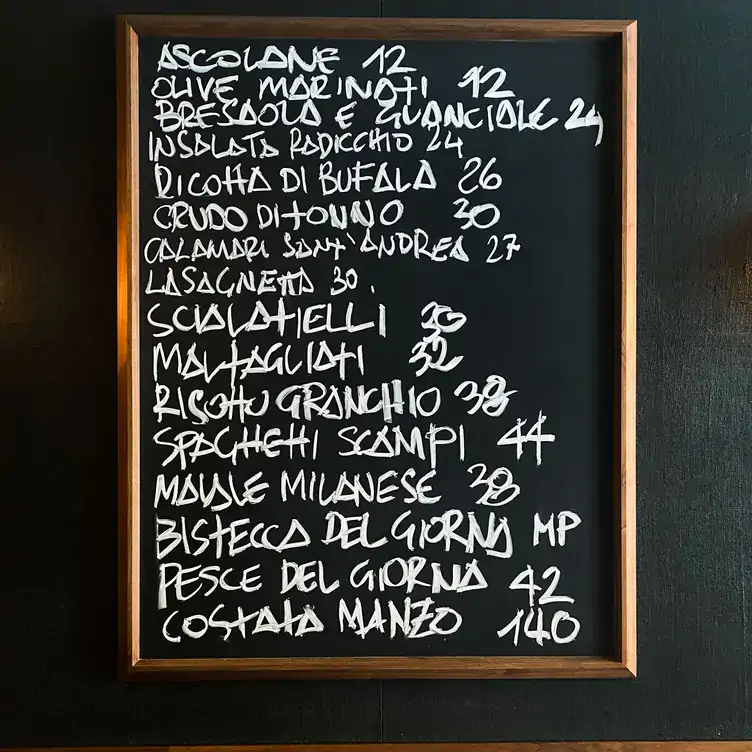 ASCOLANE 12
OLIVE MARINATI 12
BRESAOLA E GUANCIALE 24
INSALATA RADICCHIO 24
RICOTTA DI BUFALA 26
CRUDO DI TONNO 30
CALAMARI SANT'ANDREA 27
LASAGNETTA 30.
SCIALATIELLI 30
MALTAGLIATI 32
RISOTTO GRANCHIO 38
SPAGHETTI SCAMPI 44
MAIALE MILANESE 38
BISTECCA DEL GIORNO MP
PESCE DEL GIORNO 42
COSTATA MANZO 140